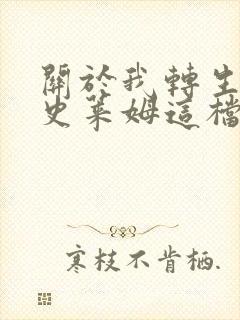 關於我轉生
史萊姆這檔
寒枝不肯栖.